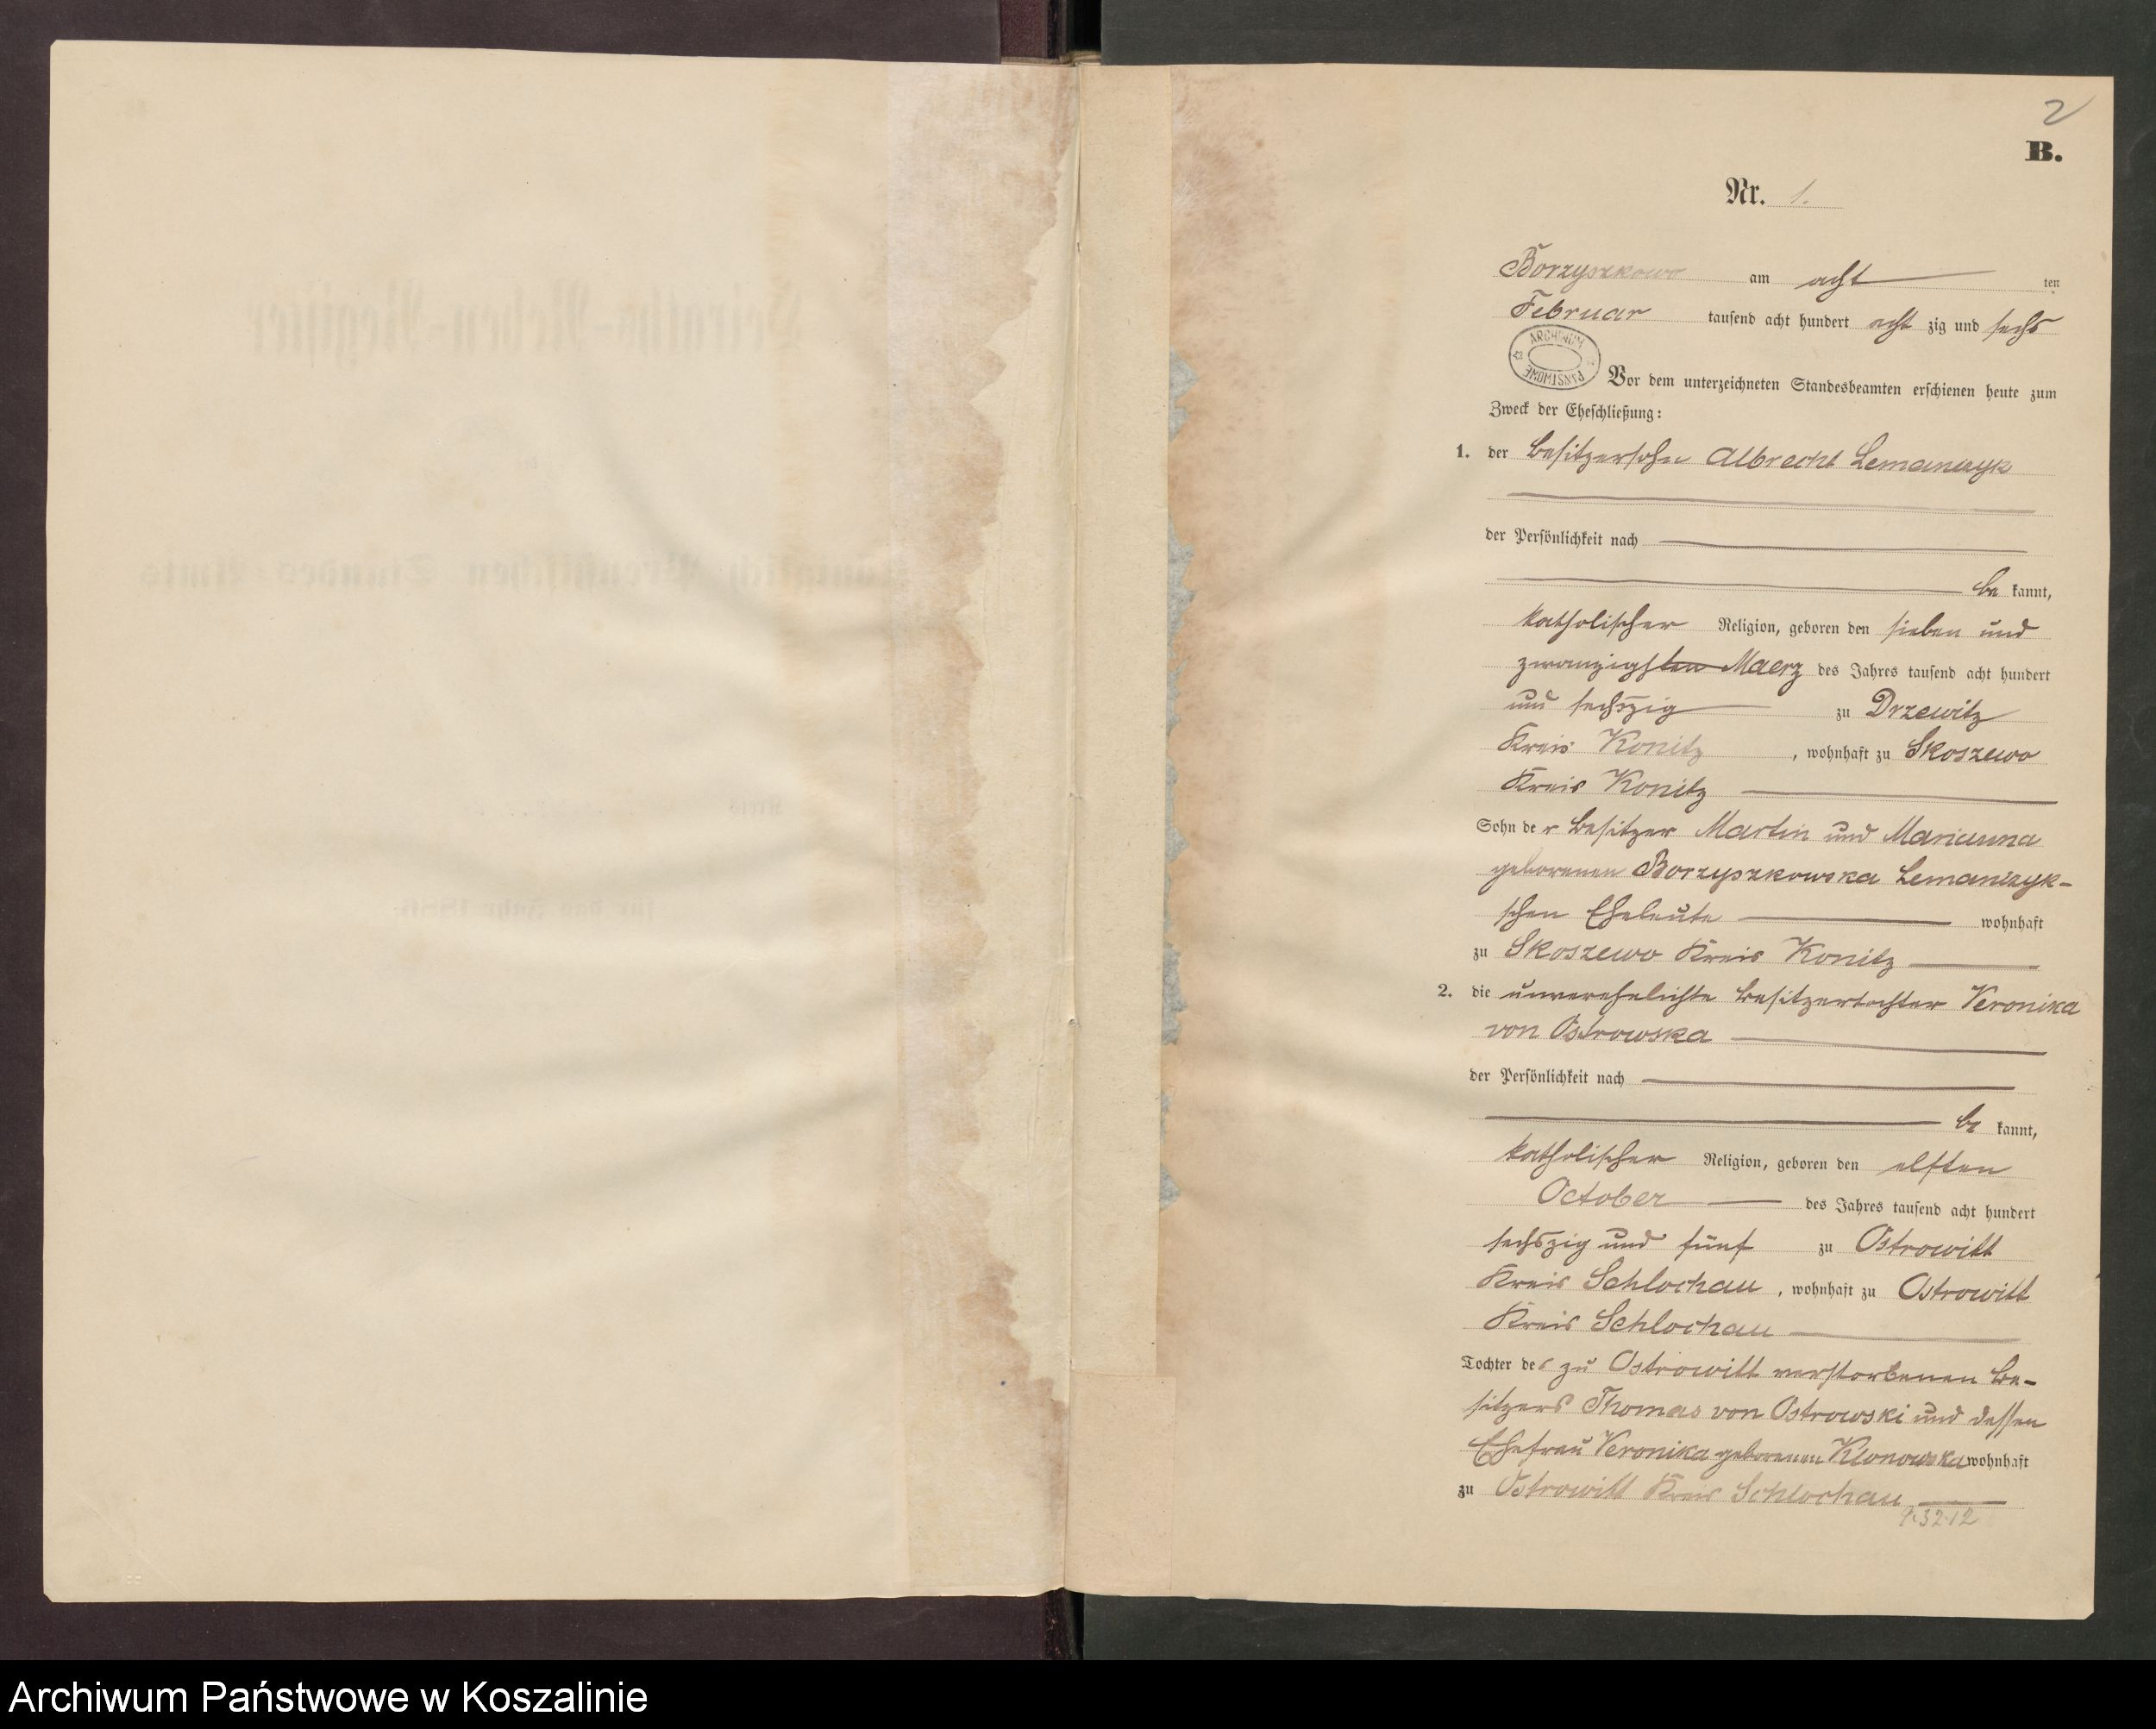 2
B.
Nr. 1.
Borzyszkowo am acht ten
Februar tausend acht hundert acht zig und sechs
ARCHIWUM PAŃSTWOWE
Vor dem unterzeichneten Standesbeamten erschienen heute zum
Zweck der Eheschließung:
1. der Besitzersohn Albrecht Lemanczyk
der Persönlichkeit nach
be kannt,
katholischer Religion, geboren den sieben und
zwanzigsten Maerz des Jahres tausend acht hundert
und sechszig zu Drzewitz
Kreis Konitz, wohnhaft zu Skoszewo
Kreis Konitz
Sohn der Besitzer Martin und Marianna
geborenen Borzyszkowska Lemanczyk-
schen Eheleute wohnhaft
zu Skoszewo Kreis Konitz
2. die unverehelichte Besitzertochter Veronika
von Ostrowska
der Persönlichkeit nach
be kannt,
katholischer Religion, geboren den elften
October des Jahres tausend acht hundert
sechszig und fünf zu Ostrowitt
Kreis Schlochau, wohnhaft zu Ostrowitt
Kreis Schlochau
Tochter des zu Ostrowitt verstorbenen Be-
sitzers Thomas von Ostrowski und dessen
Ehefrau Veronika geborenen Klonowska wohnhaft
zu Ostrowitt Kreis Schlochau
Archiwum Państwowe w Koszalinie